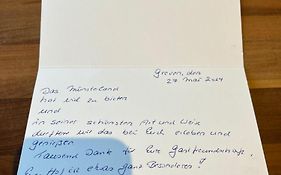 Greven, den
27. Mai 2024
Das Münsterland
hat viel zu bieten
und
in seiner schönsten Art und Weise
durften wir das bei Euch erleben und
genießen
Tausend Dank für Eure Gastfreundschaft,
Ihr Hof ist etwas Ganz Besonderes!